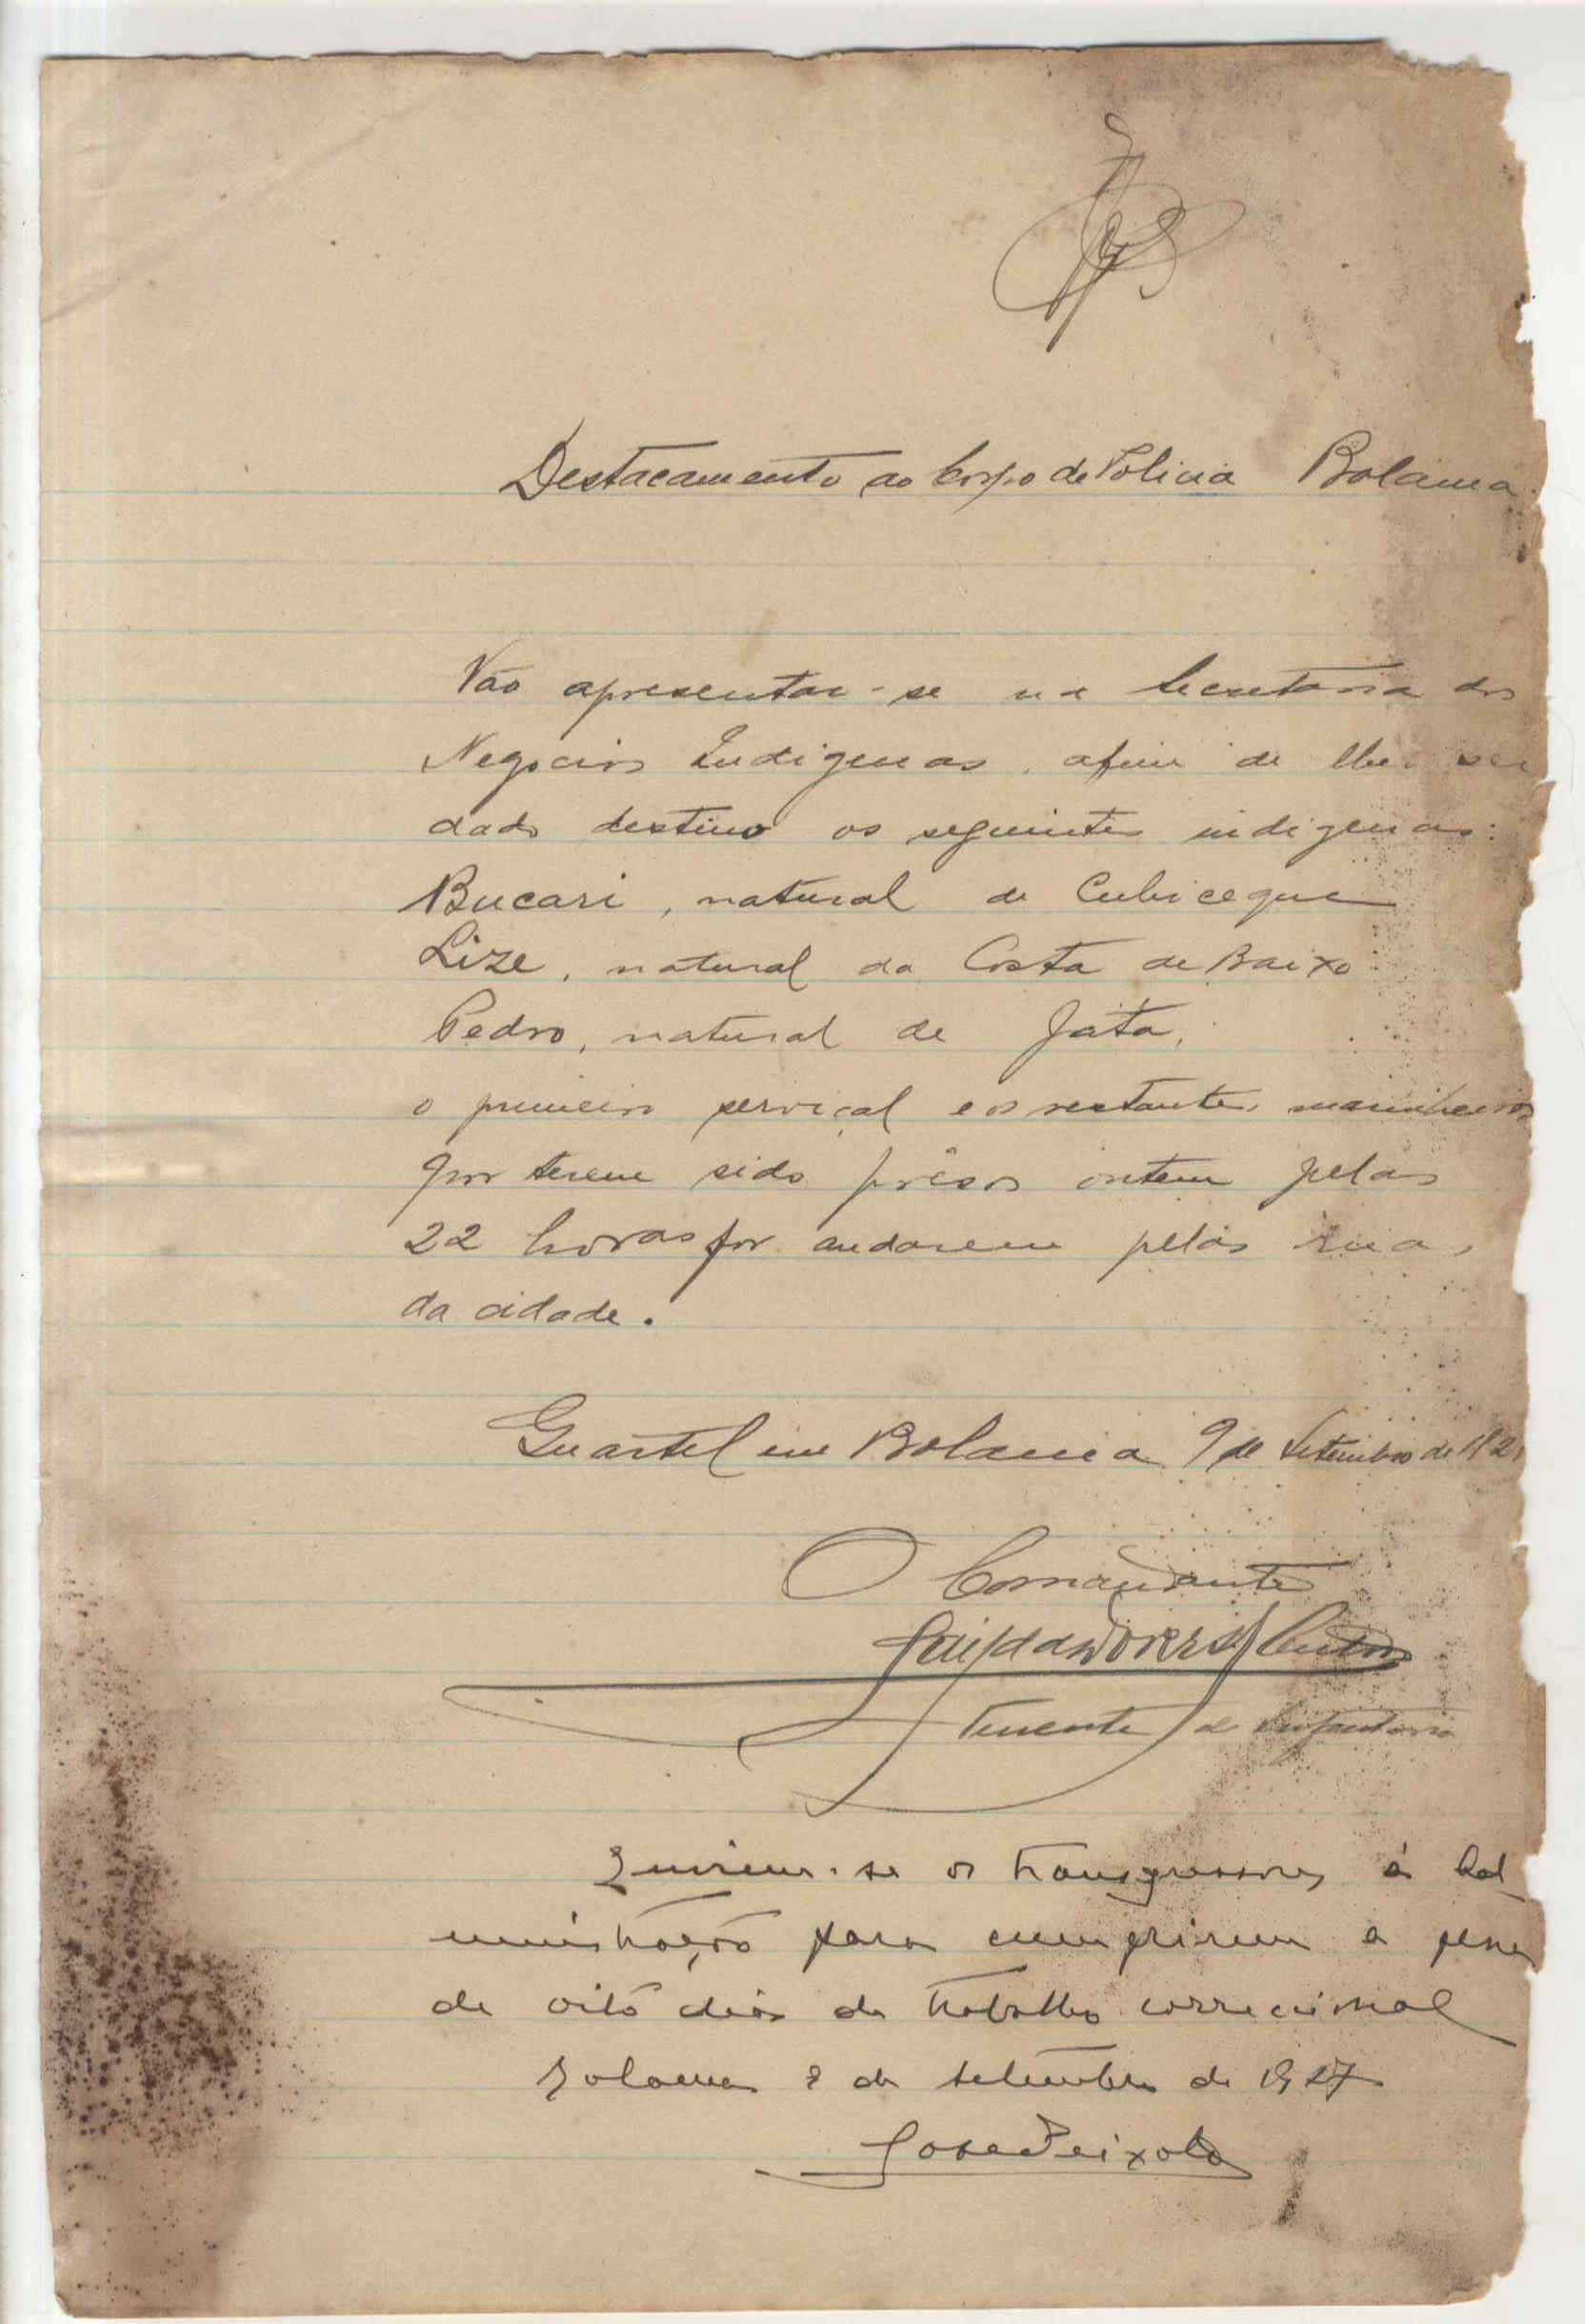 Destacamento do Corpo de Policia Bolama
Vão apresentar-se na Secretaria dos
Negocios Indigenas, afim de lhes ser
dado destino os seguintes indigenas:
Bucari, natural de Cubiceque
Lize, natural da Costa de Baixo
Pedro, natural de Jata,
o primeiro serviçal e os restantes marinheiros
por terem sido prêsos ontem pelas
22 horas por andarem pelas ruas
da cidade.
Quartel em Bolama 9 de Setembro de 192
O Comandante
Tenente de Infantaria
Enviem-se os transgressores á Ad-
ministração para cumprirem a pena
de oito dias de trabalho correcional
Bolama 9 de setembro de 1927
José Peixoto